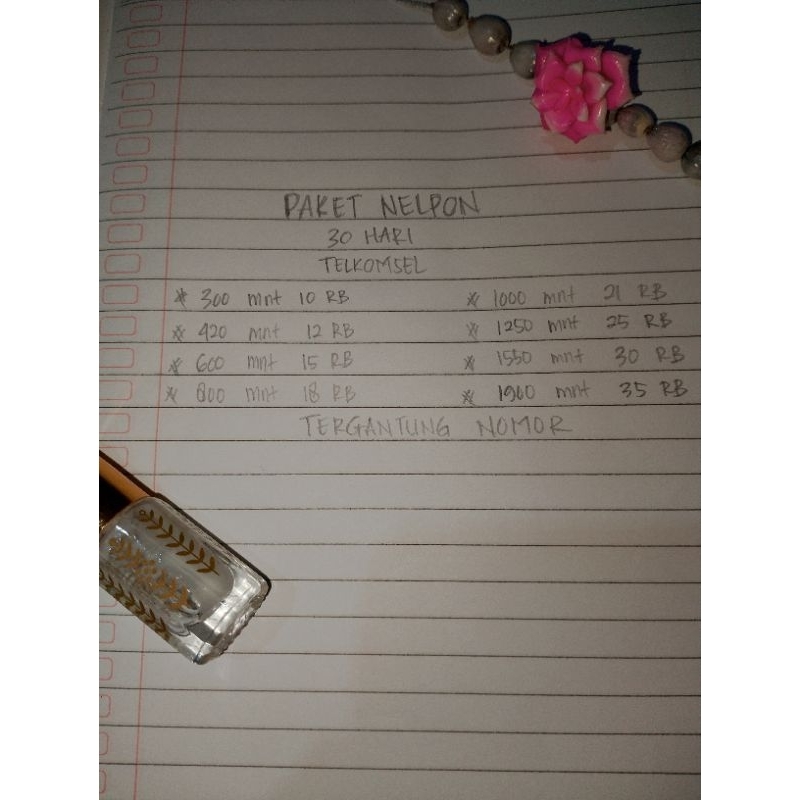 PAKET NELPON
30 HARI
TELKOMSEL
* 300 mnt 10 RB
* 420 mnt 12 RB
* 600 mnt 15 RB
* 800 mnt 18 RB
* 1000 mnt 21 RB
* 1250 mnt 25 RB
* 1550 mnt 30 RB
* 1900 mnt 35 RB
TERGANTUNG NOMOR